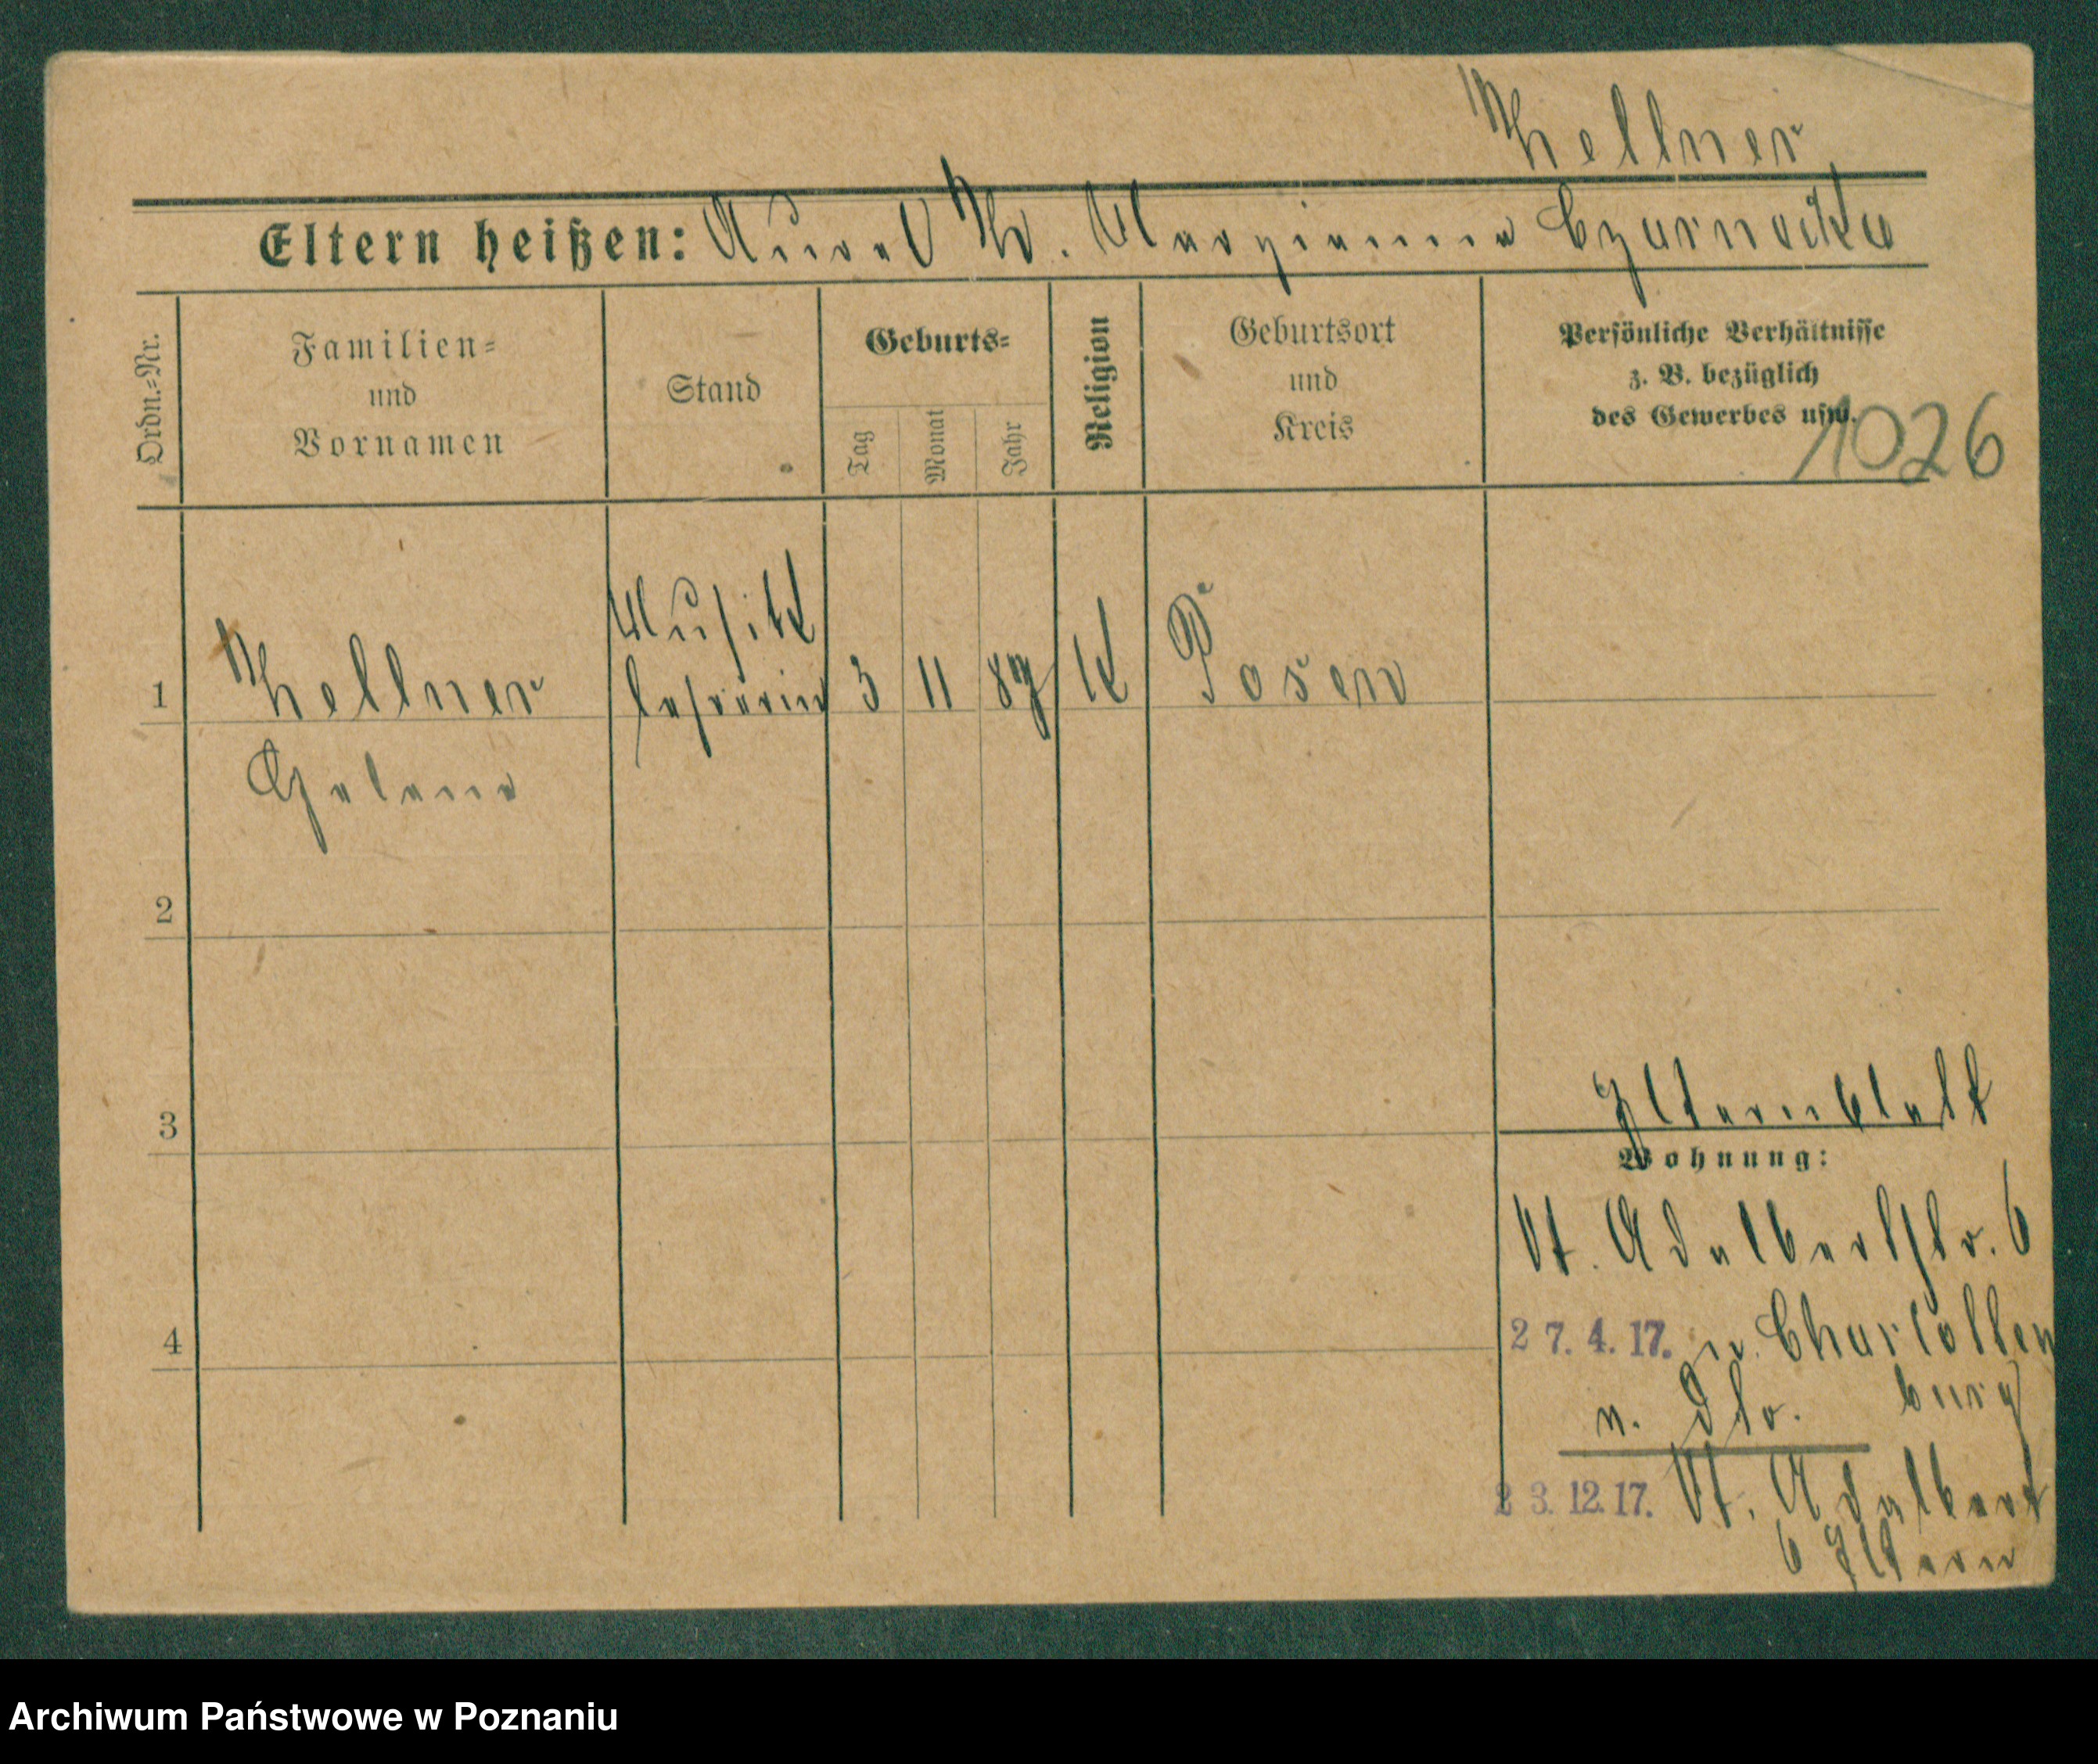 Kellner
Eltern heißen: Aurel K. Marzianna Czarnecka
Ordn.-Nr.
Familien-
und
Vornamen
Stand
Geburts-
Tag
Monat
Jahr
Religion
Geburtsort
und
Kreis
Persönliche Verhältnisse
z. B. bezüglich
des Gewerbes usw.
1026
1
Kellner
Musik
lehrerin
3
11
89
K
Posen
Helene
2
3
Elternblatt
Wohnung:
St. Adalbertstr. 6
4
27. 4. 17. n. Charlotten
burg
23. 12. 17. St. Adalbert
6 Eltern
Archiwum Państwowe w Poznaniu